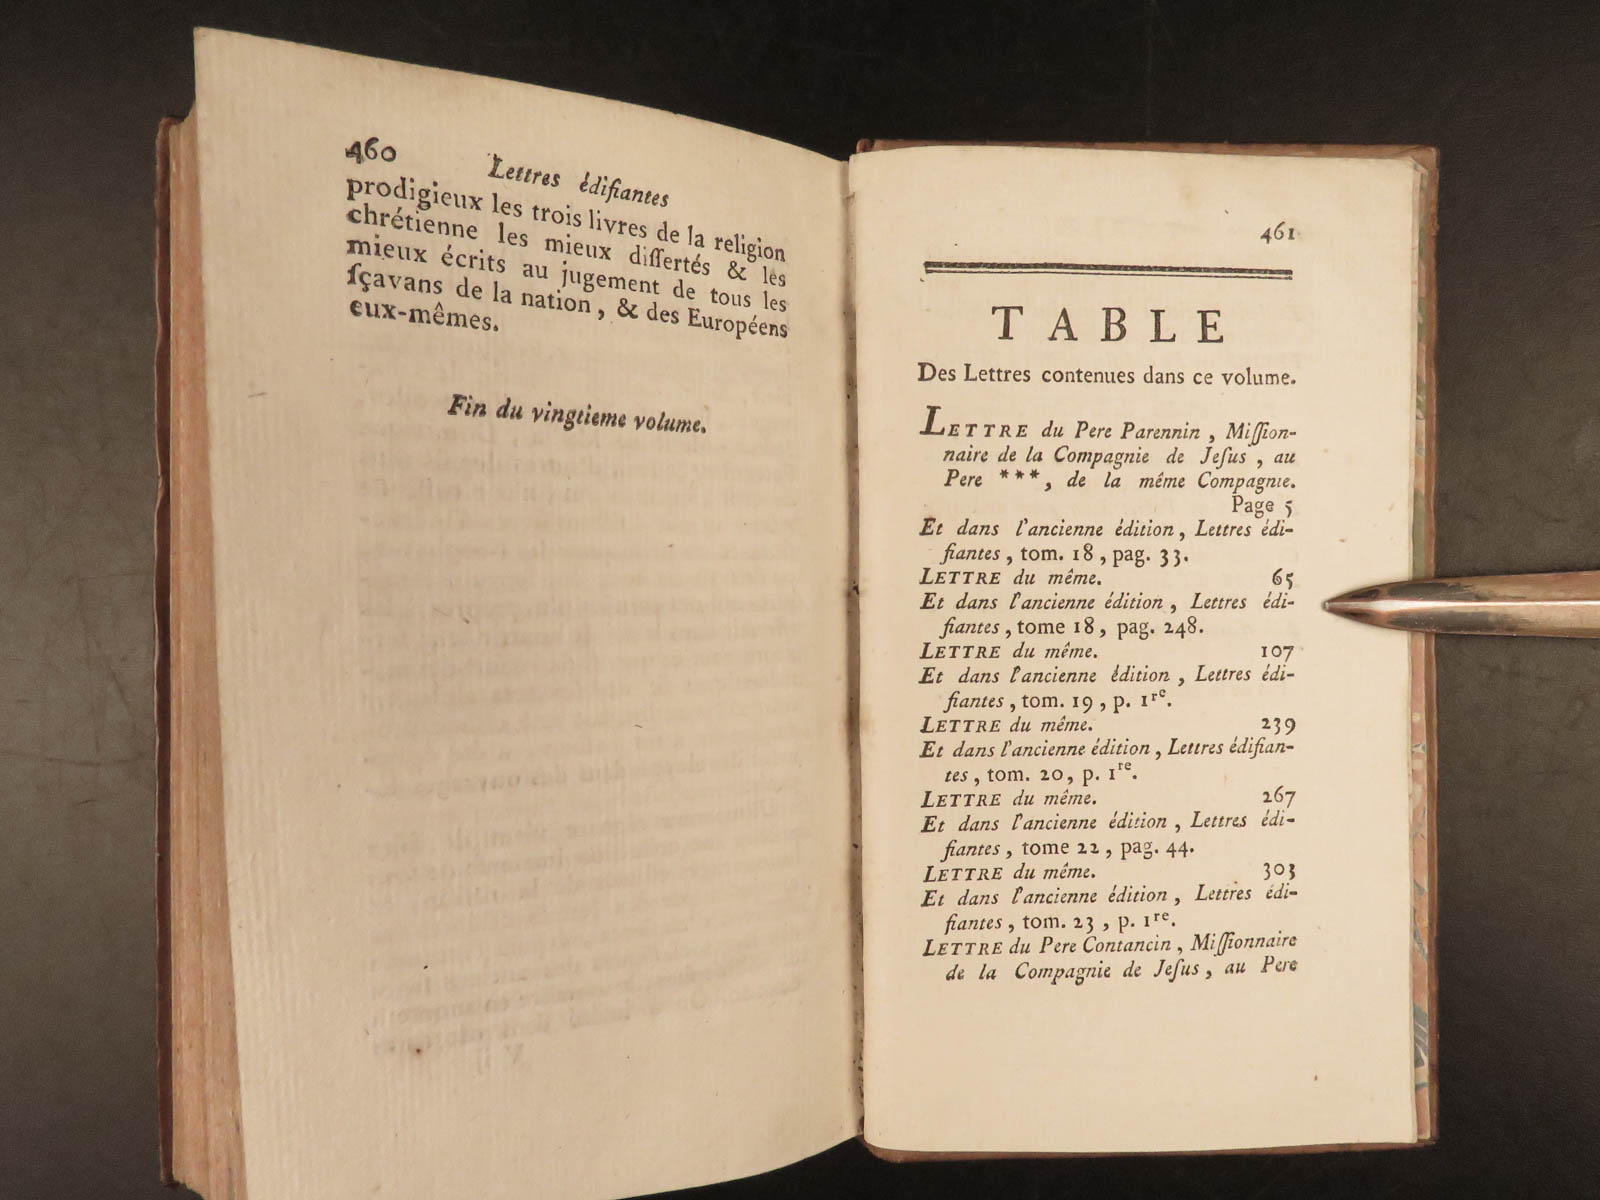 460 Lettres édifiantes
prodigieux les trois livres de la religion
chrétienne les mieux diſſertés & les
mieux écrits au jugement de tous les
ſçavans de la nation, & des Européens
eux-mêmes.
Fin du vingtieme volume.
461
TABLE
Des Lettres contenues dans ce volume.
LETTRE du Pere Parennin, Miſſion-
naire de la Compagnie de Jeſus, au
Pere ***, de la même Compagnie.
Page 5
Et dans l'ancienne édition, Lettres édi-
fiantes, tom. 18, pag. 33.
LETTRE du même. 65
Et dans l'ancienne édition, Lettres édi-
fiantes, tome 18, pag. 248.
LETTRE du même. 107
Et dans l'ancienne édition, Lettres édi-
fiantes, tom. 19, p. 1re.
LETTRE du même. 239
Et dans l'ancienne édition, Lettres édifian-
tes, tom. 20, p. 1re.
LETTRE du même. 267
Et dans l'ancienne édition, Lettres édi-
fiantes, tome 22, pag. 44.
LETTRE du même. 303
Et dans l'ancienne édition, Lettres édi-
fiantes, tom. 23, p. 1re.
LETTRE du Pere Contancin, Miſſionnaire
de la Compagnie de Jeſus, au Pere